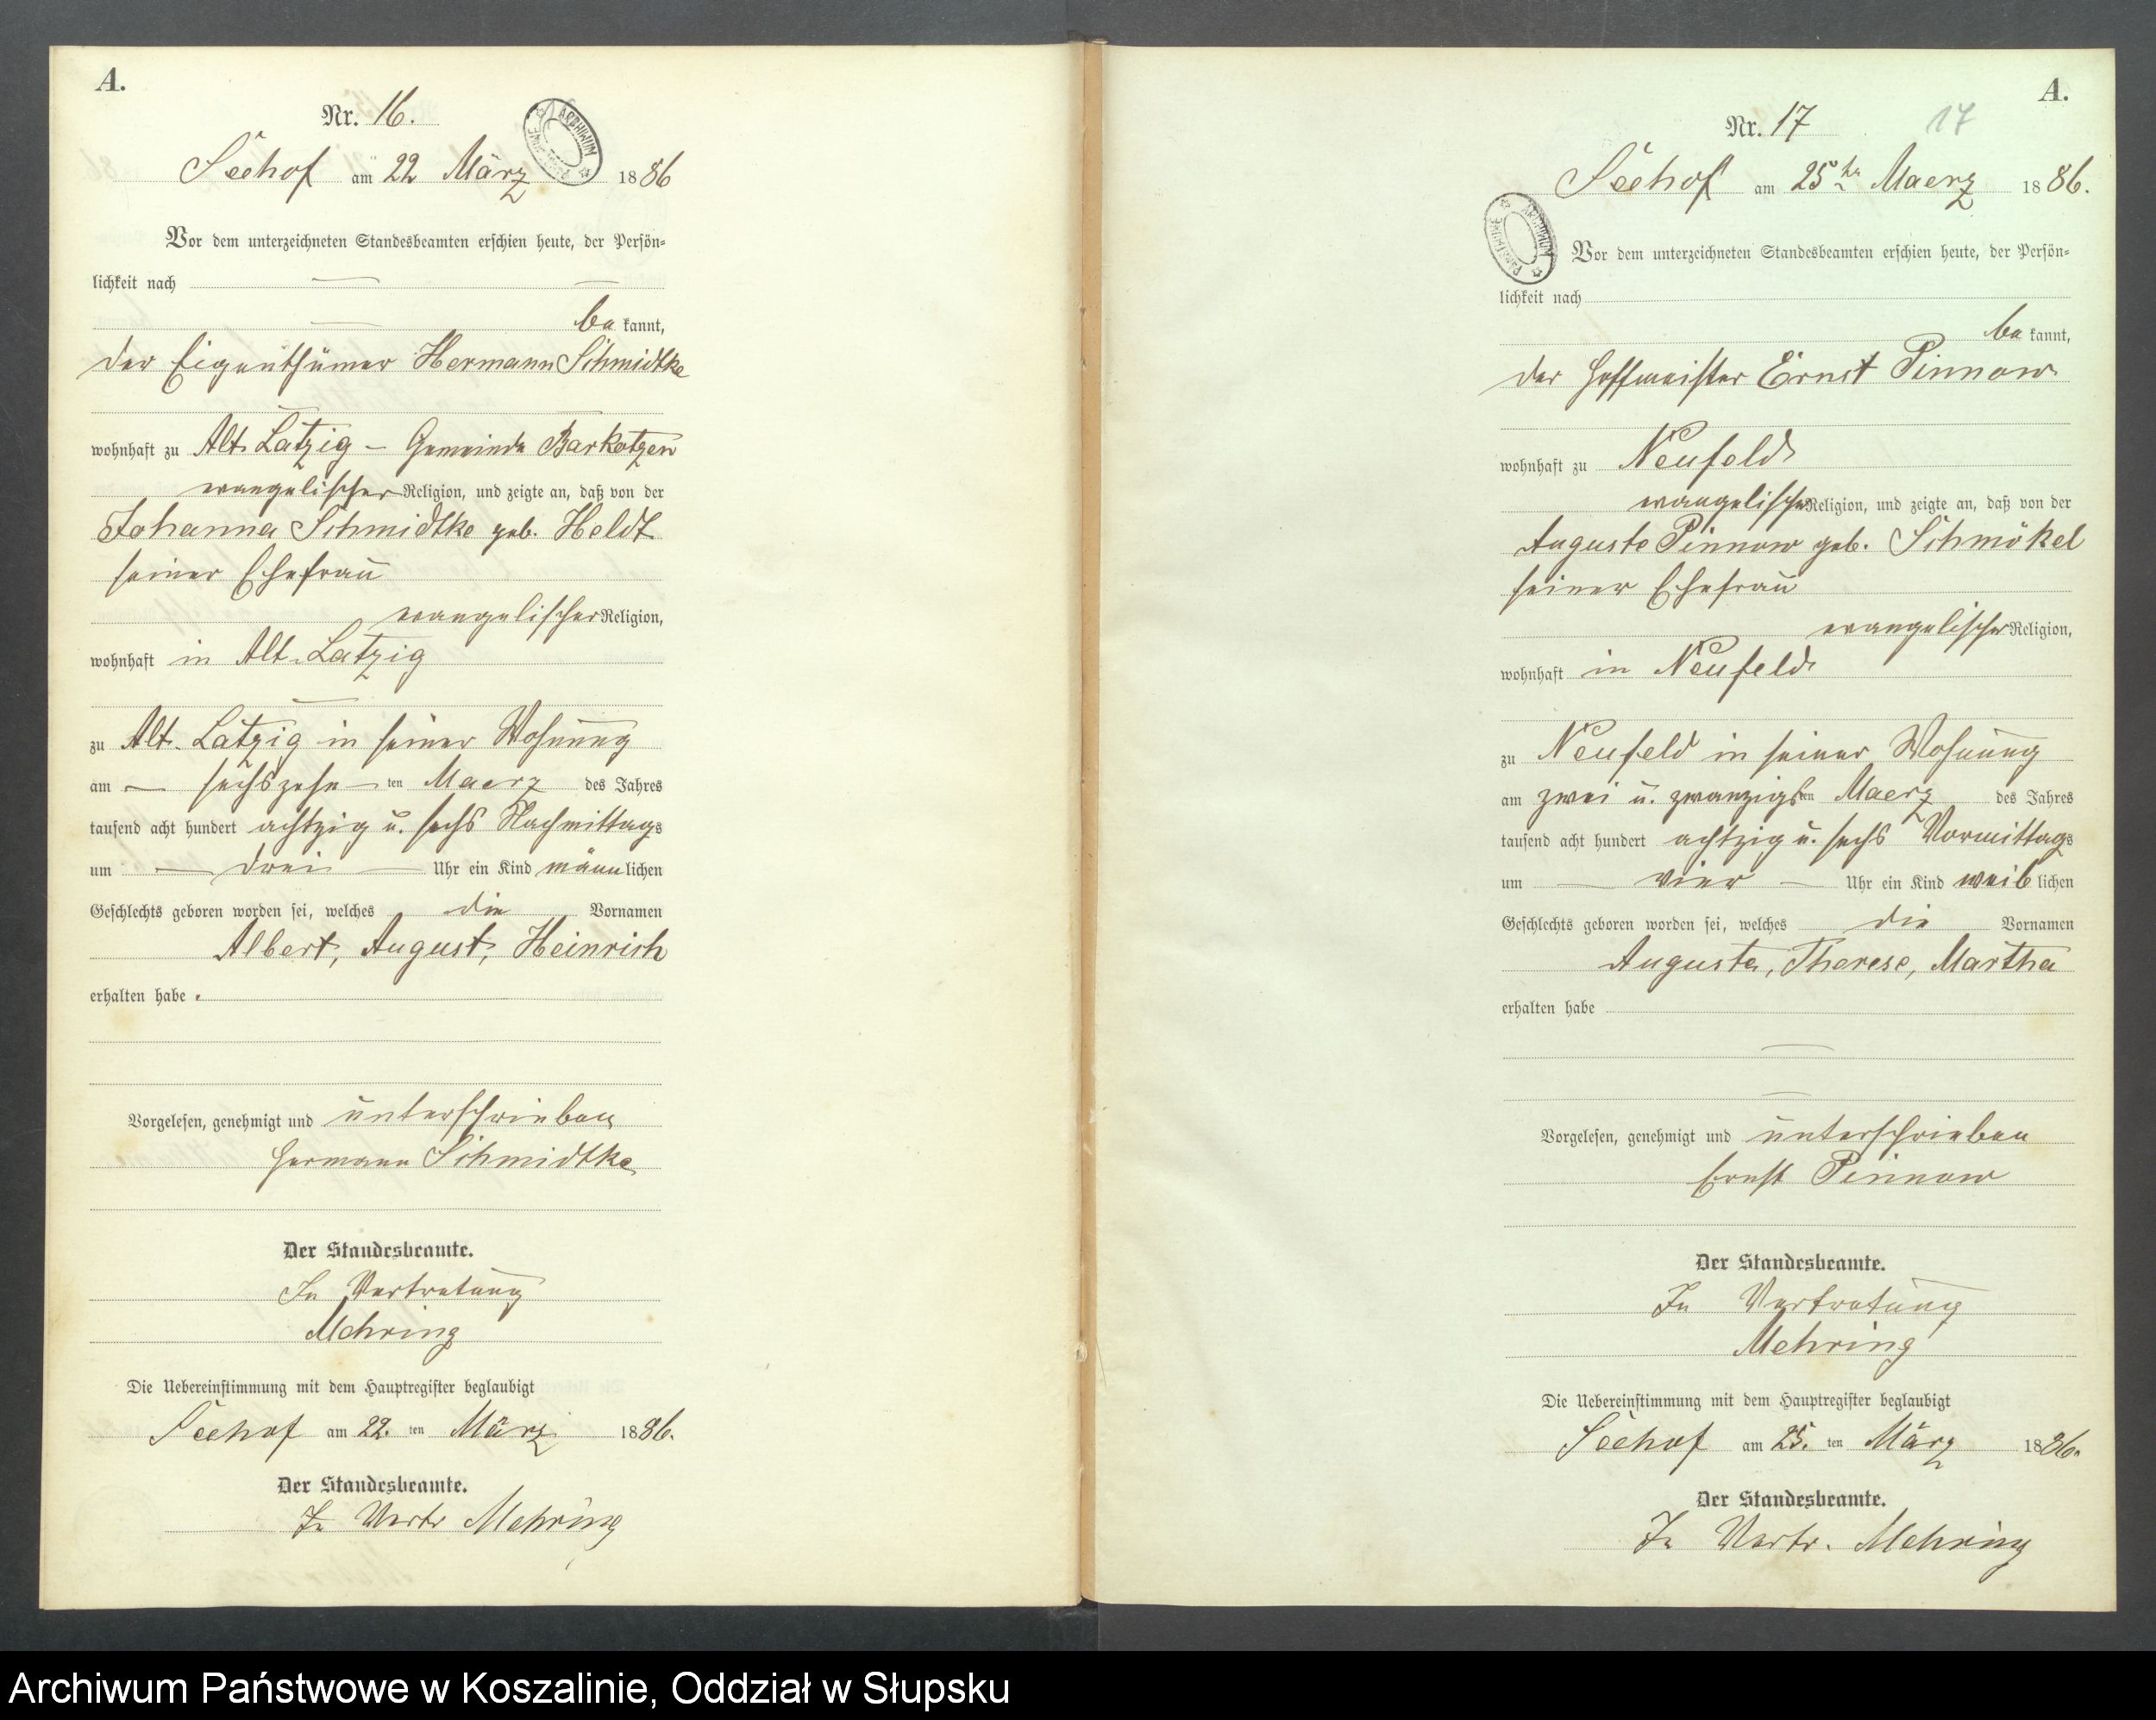 A.
Nr. 16.
Seehof am 22 März 1886
Vor dem unterzeichneten Standesbeamten erschien heute, der Persön=
lichkeit nach
be kannt,
der Eigenthümer Hermann Schmidtke
wohnhaft zu Alt. Latzig – Gemeinde Barkotzen
evangelischer Religion, und zeigte an, daß von der
Johanna Schmidtke geb. Heldt
seiner Ehefrau
evangelischer Religion,
wohnhaft in Alt. Latzig
zu Alt. Latzig in seiner Wohnung
am — sechszehn — ten Maerz des Jahres
tausend acht hundert achtzig u. sechs Nachmittags
um — drei — Uhr ein Kind männlichen
Geschlechts geboren worden sei, welches die Vornamen
Albert, August, Heinrich
erhalten habe.
Vorgelesen, genehmigt und unterschrieben
Hermann Schmidtke
Der Standesbeamte.
In Vertretung
Mehring
Die Uebereinstimmung mit dem Hauptregister beglaubigt
Seehof am 22. ten März 1886.
Der Standesbeamte.
In Vertr Mehring
A.
Nr. 17 17
Seehof am 25 Maerz 1886.
ARCHIWUM PAŃSTWOWE
Vor dem unterzeichneten Standesbeamten erschien heute, der Persön=
lichkeit nach
be kannt,
der Hoffmeister Ernst Pinnow
wohnhaft zu Neufeld
evangelischer Religion, und zeigte an, daß von der
Auguste Pinnow geb. Schmökel
seiner Ehefrau
evangelischer Religion,
wohnhaft in Neufeld
zu Neufeld in seiner Wohnung
am zwei u. zwanzigsten Maerz des Jahres
tausend acht hundert achtzig u. sechs Vormittags
um — vier — Uhr ein Kind weiblichen
Geschlechts geboren worden sei, welches die Vornamen
Auguste, Therese, Martha
erhalten habe
Vorgelesen, genehmigt und unterschrieben
Ernst Pinnow
Der Standesbeamte.
In Vertretung
Mehring
Die Uebereinstimmung mit dem Hauptregister beglaubigt
Seehof am 25. ten März 1886.
Der Standesbeamte.
In Vertr. Mehring
Archiwum Państwowe w Koszalinie, Oddział w Słupsku